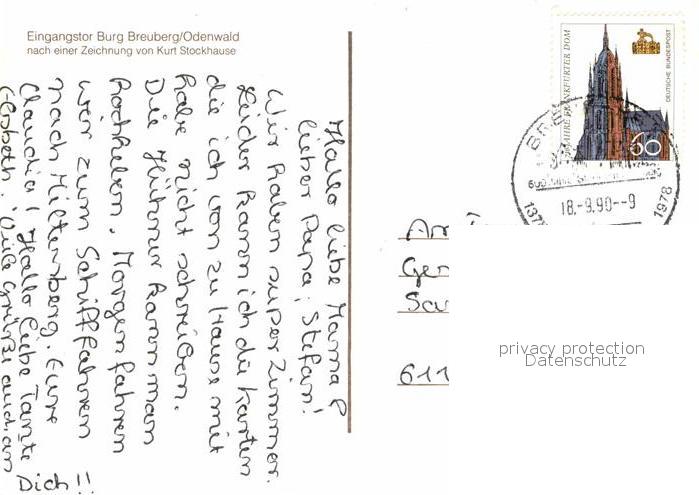 Eingangstor Burg Breuberg/Odenwald
nach einer Zeichnung von Kurt Stockhause
Hallo liebe Mama &
lieber Papa, Stefan!
Wir haben super Zimmer.
Leider kann ich die Karten
die ich von zu Hause mit
habe nicht schreiben.
Die Hühner kann man
hochheben. Morgen fahren
wir zum Schifffahren
nach Miltenberg. Eure
Claudia! Hallo liebe Tante
Elsbeth! Viele Grüße auch an
Dich!!
JAHRE FRANKFURTER DOM
DEUTSCHE BUNDESPOST
60
BRE
18.-9.90--9
1378
1978
An
Ger
611
privacy protection
Datenschutz